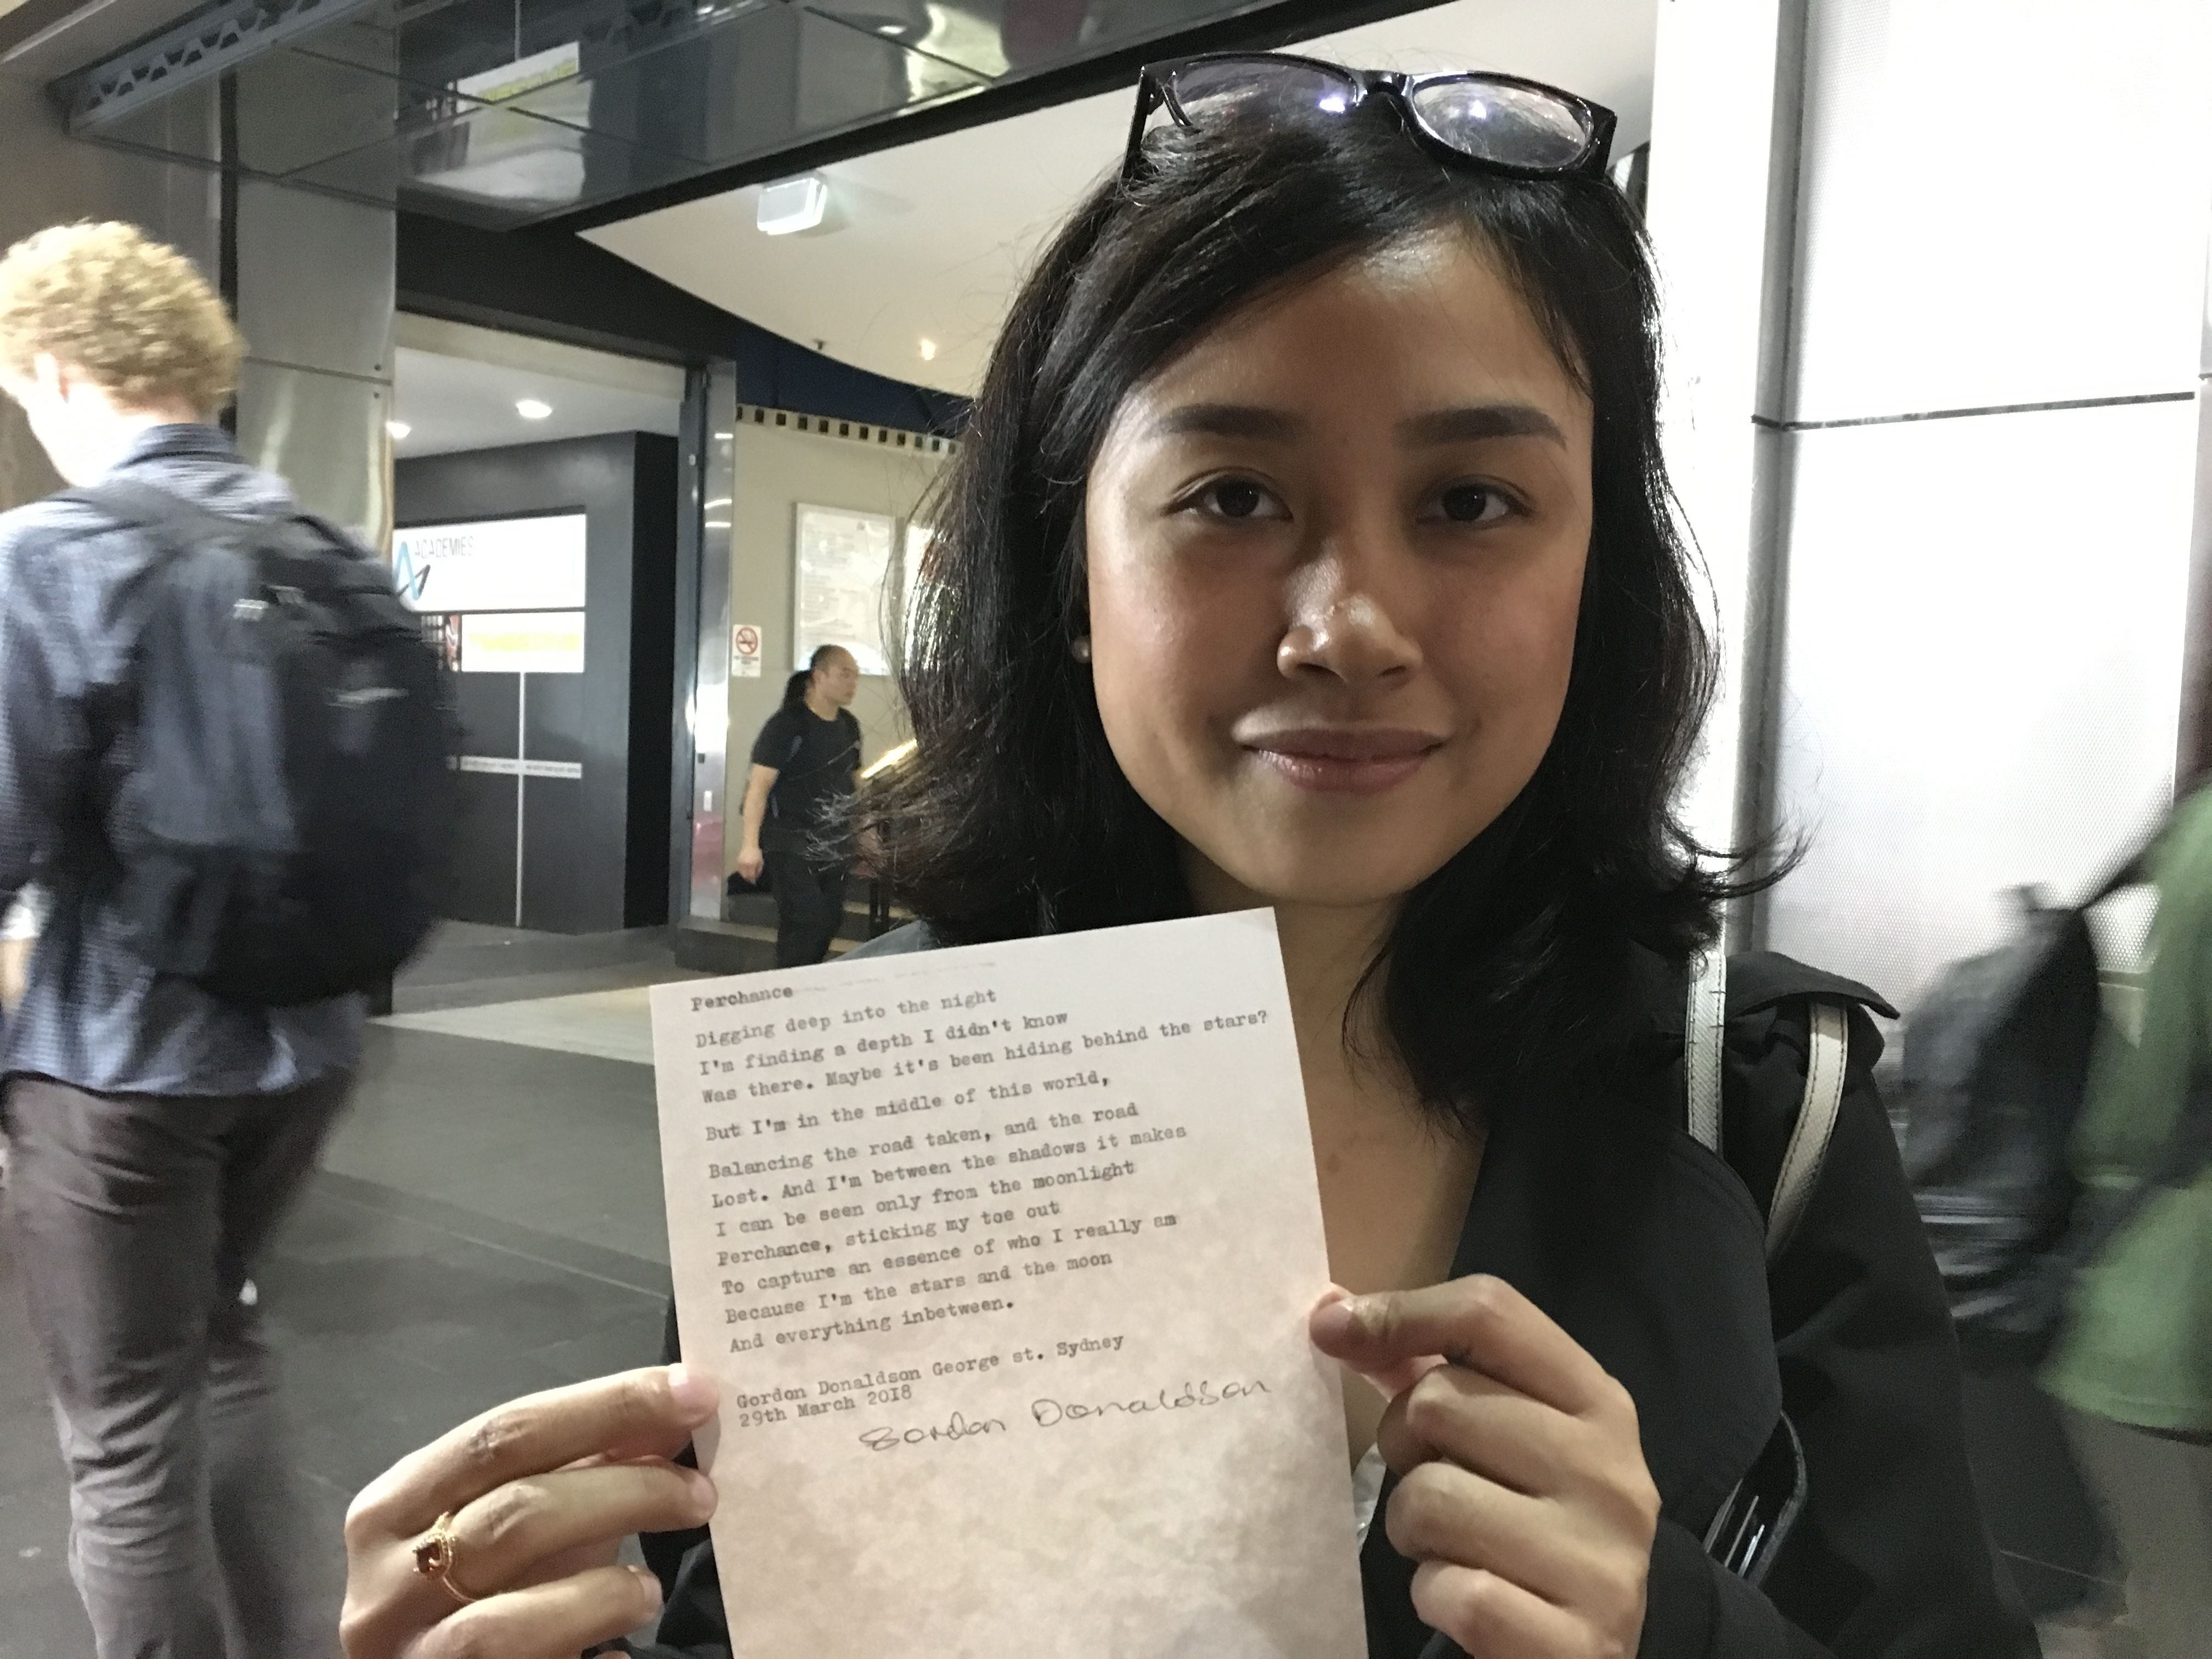 ACADEMIES
Perchance
Digging deep into the night
I'm finding a depth I didn't know
Was there. Maybe it's been hiding behind the stars?
But I'm in the middle of this world,
Balancing the road taken, and the road
Lost. And I'm between the shadows it makes
I can be seen only from the moonlight
Perchance, sticking my toe out
To capture an essence of who I really am
Because I'm the stars and the moon
And everything inbetween.
Gordon Donaldson George st. Sydney
29th March 2018
Gordon Donaldson